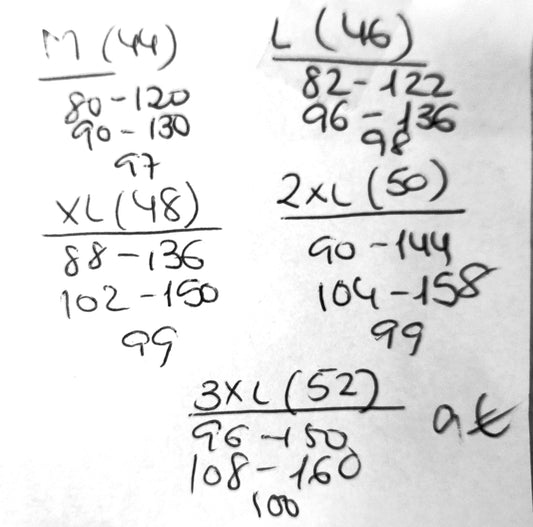 M (44)
80-120
90-130
97
L (46)
82-122
96-136
98
XL (48)
88-136
102-150
99
2XL (50)
90-144
104-158
99
3XL (52)
96-150
108-160
100